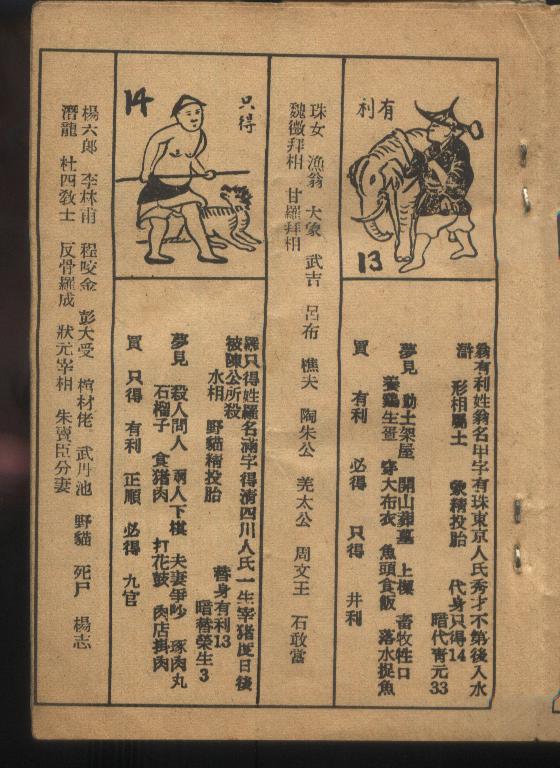 有利
13
翁有利姓翁名甲字有珠東京人氏秀才不第後入水
滸
形相屬土 象精投胎 代身只得14
暗代青元33
夢見 動土築屋 開山葬墓 上樑 畜牧牲口
養鷄生蛋 穿大布衣 魚頭食飯 落水捉魚
買 有利 必得 只得 井利
珠女 漁翁 大象 武吉 呂布 樵夫 陶朱公 姜太公 周文王 石敢當
魏徵拜相 甘羅拜相
只得
14
羅只得姓羅名滿字得清四川人氏一生宰猪度日後
被陳公所殺
水相 野貓精投胎 替身有利13
暗替榮生3
夢見 殺人問人 兩人下棋 夫妻爭吵 琢肉丸
石榴子 食猪肉 打花鼓 肉店掛肉
買 只得 有利 正順 必得 九官
楊六郎 李林甫 程咬金 彭大受 棺材佬 武丹池 野貓 死尸 楊志
潛龍 杜四教士 反骨羅成 狀元宰相 朱賣臣分妻